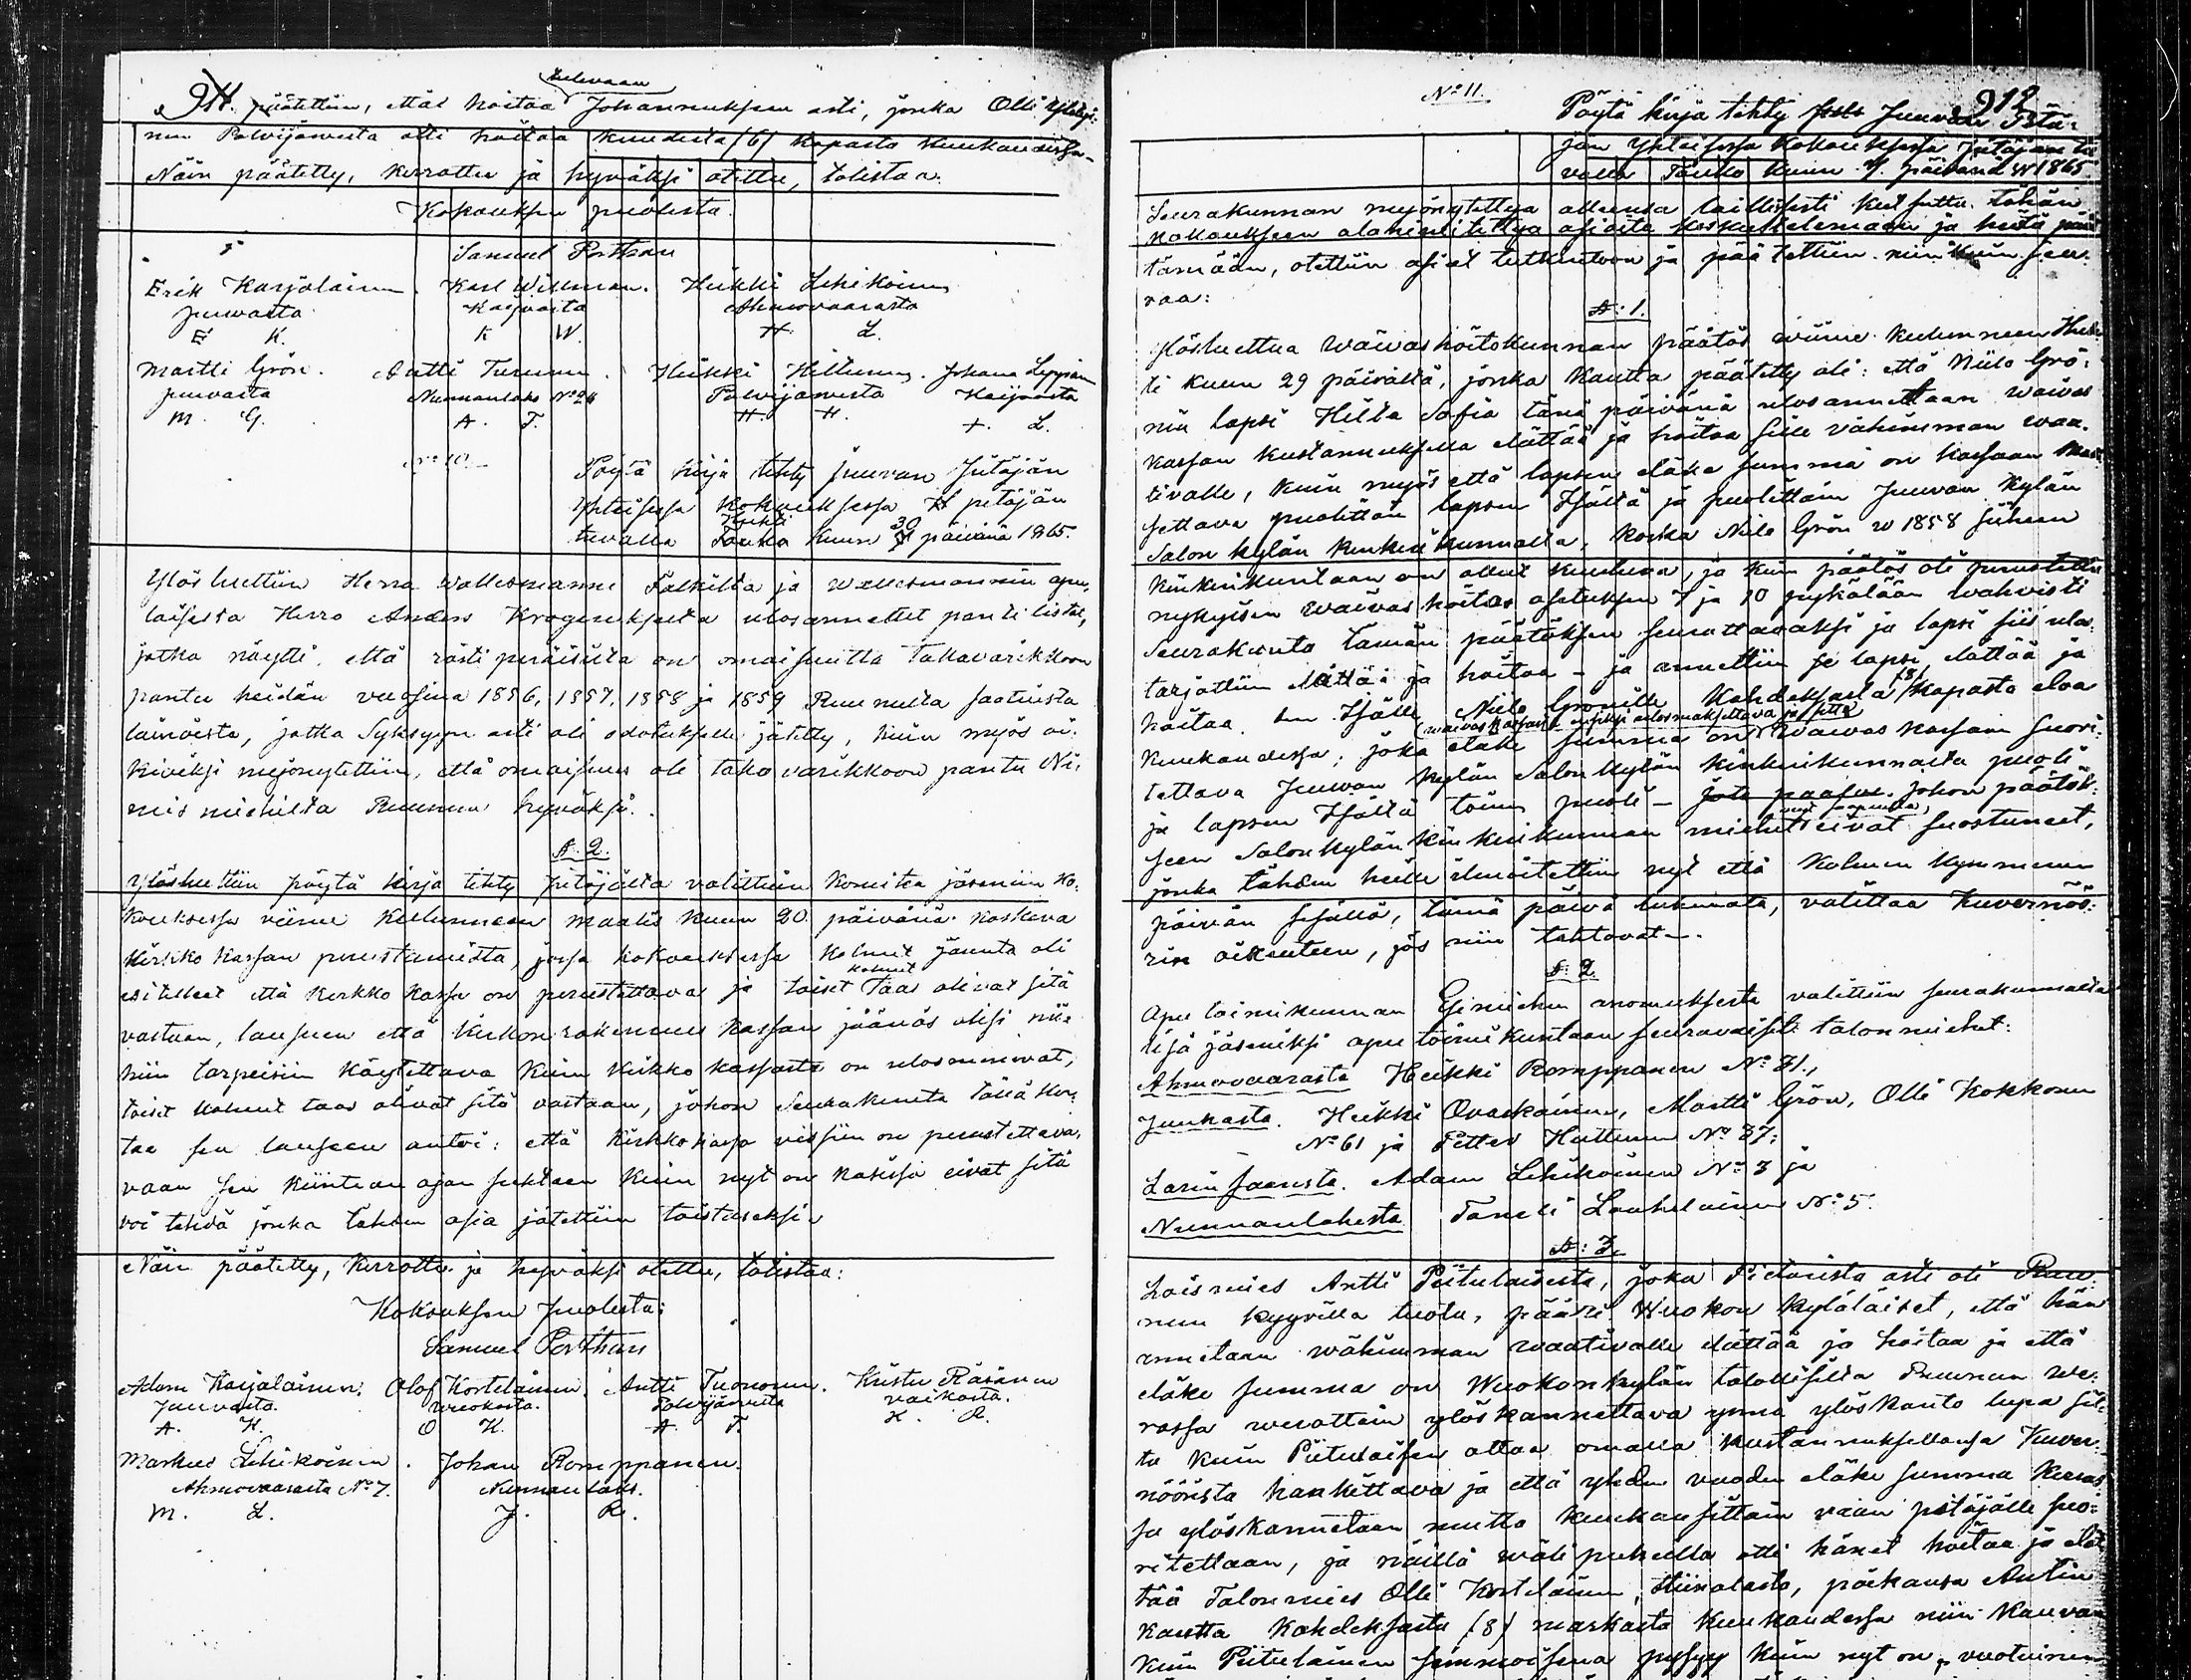 tulevaan
911. päätettiin, että hoitaa Johannuksen asti, jonka Olli
nen Polvijärvestä otti hoitaa kuudesta (6) kapasta kuukaudessa.
Näin päätetty, kerrottu ja hyväksi otettu, todistaa.
Kokouksen puolesta.
Samuel Porthan
Erik Karjalainen. Karl Willman. Heikki Lehikoinen
Juuasta Ahmovaarasta
E K. K W. H. L.
Martti Grön. Antti Turunen. Heikki Hiltunen. Johana Leppänen
Juuasta Nunnanlaks No 24 Polvijärvestä
M. G. A. T. H. H. +. L.
No 10.
Pöytä kirja tehty Juuvan Pitäjän
Yhteisessä Kokouksessa pitäjän
Huhti 30
tuvalla Touko Kuun päivänä 1865.
Ylös luettiin Herra Wallesmanni Falkilta ja Wallesmannin apu-
laisesta Herra Anders Krogeruksesta ulosannettu panti lista,
jotka näytti, että rästi peräisistä on omaisuutta takavarikkoon
pantu heidän vuosina 1856, 1857, 1858 ja 1859 Ruunulta saaduista
lainoista, jotka Syksyyn asti oli odotukselle jätetty, kuin myös oi-
keiksi myönnytettiin, että omaisuus oli takavarikkoon pantu Ni-
mismieheltä Ruunun hyväksi.
§. 2.
Ylösluettiin pöytä kirja tehty pitäjältä valittuin Komitea jäsenien ko-
kouksessa viime kuluneen maalis kuun 20 päivänä koskeva
kirkko kassan perustamista, jossa kokouksessa kolmet jäsentä oli
kolmet
esitelleet että kirkko kassa on perustettava ja toiset taas olivat sitä
vastaan, lausuen että kirkon rakennus kassan jäännös olisi nii-
hin tarpeisin käytettävä kuin kirkko kassasta on ulosmenevat,
toiset kolmet taas olivat sitä vastaan, johon Seurakunta tällä ker-
taa sen lauseen antoi: että kirkko kassa vissiin on perustettava,
vaan sen kiintean ajan suhteen kuin nyt on käsissä eivät sitä
voi tehdä jonka tähden asia jätettiin toistaseksi.
Näin päätetty, kerrottu ja hyväksi otettu, todistaa:
Kokouksen puolesta:
Samuel Porthan
Adam Karjalainen. Olof Kortelainen. Antti Tuononen. Kristu Räsänen
Juuvasta. Wuokosta. Polvijärvestä Vaikosta.
A. K. O K. A. T. K. R.
Markus Lehikoinen. Johan Romppanen.
Ahmovaarasta No 7. Nunnanlaks.
M. L. J. R.
No 11. 912
Pöytä kirja tehty Juuvan Pitä-
jän Yhteisessä Kokouksessa Pitäjän tu
valla Touko Kuun päivänä w 1865.
Seurakunnan myönnytettyä allensa laillisesti kutsuttu tähän
kokoukseen alanimitettyä asioita keskustelemaan ja heitä päät
tämään, otettiin asiat tutkintoon ja päätettiin niinkuin seu-
raa:
§: 1.
Ylösluettua Waivashoitokunnan päätös viime kuluneen Huh-
ti kuun 29 päivältä, jonka kautta päätetty oli: että Niilo Grö-
nin lapsi Hilda Sofia tänä päivänä ulosannettaan waivas
kassan kustannuksella elättää ja hoitaa sille vähimmän waa-
tivalle, kuin myös että lapsen eläke summa on kassaan mak
settava puolittain lapsen Isältä ja puolittain Juuvan kylän
Salon kylän kinkeri kunnalta, koska Niilo Grön w 1858 siihen
kinkerikuntaan on ollut kuuluva, ja kuin päätös oli perustettu
nykyisen waivashoitos asetuksen 7 ja 10 pykälään wahvisti
Seurakunta tämän päätöksen seurattavaksi ja lapsi siis ulos
tarjottiin elättää ja hoitaa – ja annettiin se lapsi elättää ja
hoitaa sen Isälle Niilo Grönille Kahdeksasta (8) kapasta eloa
(waivaskassasta ensiksi ulosmaksettava ja sitte
kuukaudessa; joka eläke summa on waivas kassaan suori-
tettava Juuvan kylän Salon kylän kinkerikunnalta puoli
ja lapsen Isältä toinen puoli – jota paatos johon päätök-
seen Salonkylän kinkerikunnan miehet eivät suostuneet,
jonka tähden heille ilmoitettiin nyt että kolmen kymmenen
päivän sisällä, tämä päivä lukemata, valittaa Kuvernöö-
rin oikeuteen, jos niin tahtovat.
§: 2.
Apu toimikunnan Esimiehen anomuksesta valittiin seurakunnalta
lisä jäseniksi apu toimikuntaan seuraavaiset talonmiehet:
Ahmovaarasta Heikki Romppanen No 31.,
Juukasta. Heikki Ovaskainen, Martti Grön, Olli Kokkonen
No 61 ja Petter Huttunen No 37;
Larinsaaresta. Adam Lehikoinen No 3 ja
Nunnanlahesta Taneli Laukelainen No 5.
§: 3.
Loismies Antti Piitulaisesta, joka Pietarista asti oli Ruu-
nun kyyvillä tuotu, päätti Wuokon kyläläiset, että hän
annetaan wähimmän waativalle elättää ja hoitaa ja että
eläke summa on Wuokonkylän talollisilta Ruunun we-
rossa werottain ylöskannettava ynnä ylöskanto lupa sil-
tä kuin Piitulaisen ottaa omalla kustannuksellansa Kuver-
nööristä hankittava ja että yhden vuoden eläke summa kerras
sa ylöskannetaan mutta kuukausittain vaan pitäjälle suo-
ritettaan, ja näillä wäli puheilla otti hänet hoitaa ja elät
tää Talonmies Olli Kortelainen, poikansa Antin
kautta Kahdeksasta (8) markasta kuukaudessa niin kauvan
kuin Piitulainen semmoisena pysyy kuin nyt on,